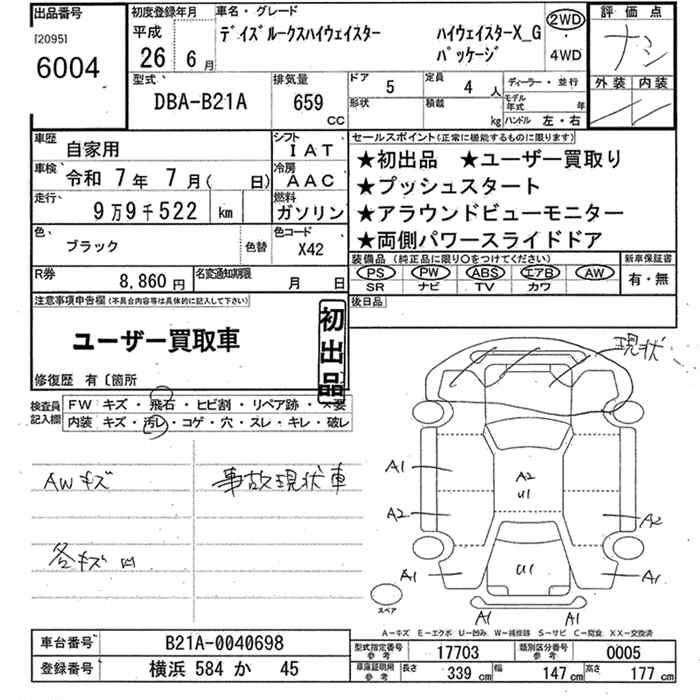 出品番号
[2095]
6004
初度登録年月
平成
26年 6月
車名・グレード
デイズルークスハイウェイスター ハイウェイスターX_G
パッケージ
2WD
・
4WD
評価点
ナシ
外装 内装
型式
DBA-B21A
排気量
659
CC
ドア 5
定員 4 人
ディーラー・並行
形状
積載 kg
モデル年式 年
ハンドル 左・右
車歴 自家用
シフト IAT
車検 令和 7年 7月( 日)
冷房 AAC
走行 9万9千522 km
燃料 ガソリン
色 ブラック
色替
色コード X42
R券 8,860円
名変通知期限 月 日
セールスポイント(正常に機能するものに限ります)
★初出品 ★ユーザー買取り
★プッシュスタート
★アラウンドビューモニター
★両側パワースライドドア
装備品 (純正品に限り○をつけてください)
PS PW ABS エアB AW
SR ナビ TV カワ
新車保証書
有・無
注意事項申告欄(不具合内容等は具体的に記入して下さい)
ユーザー買取車
初出品
修復歴 有〔箇所
後日品
検査員記入欄
FW キズ・飛石・ヒビ割・リペア跡・×要
内装 キズ・汚レ・コゲ・穴・スレ・キレ・破レ
AWキズ
事故現状車
各キズ凹
現状
A1
A2
U1
A2
A2
A1
U1
A1
A1 A1
スペア
A-キズ E-エクボ U-凹み W-補修跡 S-サビ C-腐食 XX-交換済
車台番号 B21A-0040698
登録番号 横浜 584 か 45
型式指定番号 参考 17703
類別区分番号 参考 0005
車庫証明用 参考 長さ 339 cm 幅 147 cm 高さ 177 cm